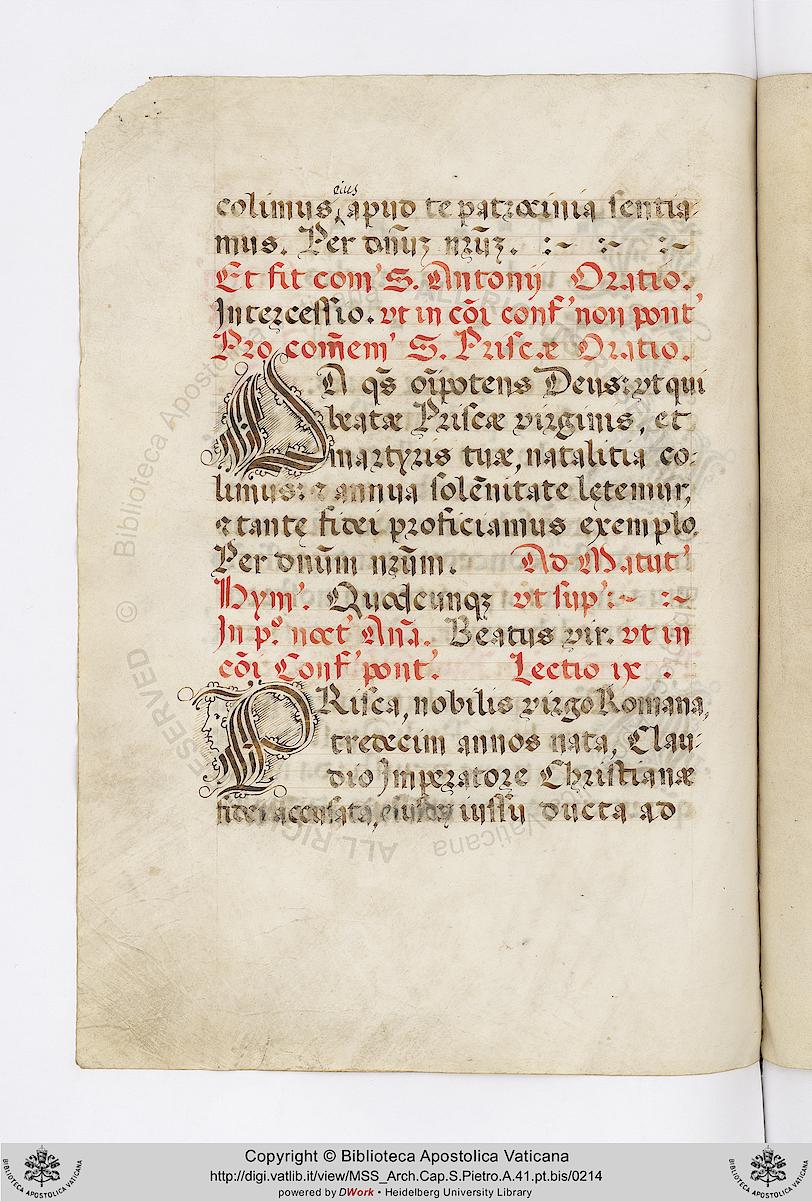 eius
colimus, apud te patrocinia sentia-
mus. Per dnūȝ nrūȝ. :~ :~ :~
Et fit com' S. Antonij Oratio.
Intercessio. vt in cōi conf' non pont'
Pro com̄em' S. Priscæ Oratio.
DA qs̄ oīpotens Deus: vt qui
beatæ Priscæ virginis, et
martyris tuæ, natalitia co-
limus: & annua solēnitate lętemur,
& tantę fidei proficiamus exemplo.
Per dnūm nrūm. Ad Matut'
Hym'. Quodcunqȝ vt sup': ~ :~
In p.º noct' Añā. Beatus vir. vt in
cōi Conf' pont'. Lectio ix.
PRisca, nobilis virgo Romana,
tredecim annos nata, Clau-
dio Imperatore Christianæ
fidei accusata, eiusdȝ iussu ducta ad
Copyright © Biblioteca Apostolica Vaticana
http://digi.vatlib.it/view/MSS_Arch.Cap.S.Pietro.A.41.pt.bis/0214
powered by DWork • Heidelberg University Library
BIBLIOTECA APOSTOLICA VATICANA
BIBLIOTECA APOSTOLICA VATICANA